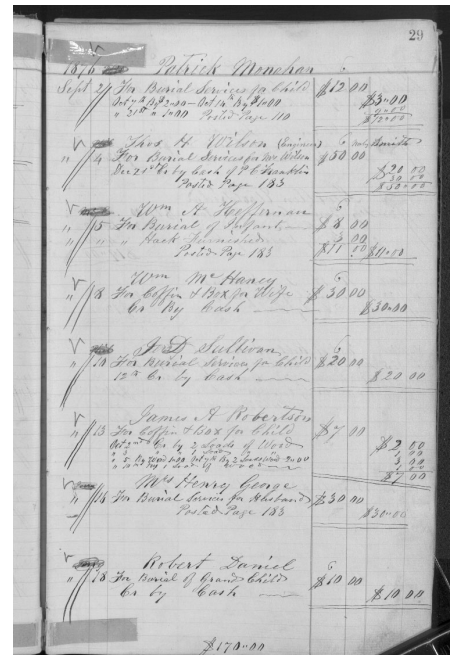 29
1876 Patrick Monahan
Sept 2 For Burial Services for Child $12 00
Oct 7th By $2.00 - Oct 14th By $1.00 $3.00
" 21st " 9.00 Posted Page 110 9.00
$12.00
Thos H Wilson (Engineer) Smith
" 4 For Burial Services for Mrs Wilson $50 00
Dec 21st Cr by Cash of P C Franklin $20 00
Posted Page 183 30 00
$50.00
Wm A Heffernan
" 5 For Burial of Infant $8 00
" " " Hack Furnished 3 00
Posted Page 183 $11 00 $11.00
Wm McHaney
" 8 For Coffin & Box for Wife $30 00
Cr By Cash $30.00
J D Sullivan
" 10 For Burial Services for Child $20 00
12th Cr by Cash $20 00
James A Robertson
" 13 For Coffin & Box for Child $7 00
Oct 2nd Cr by 2 Loads of Wood $2 00
$7 00
Mrs Henry George
" 16 For Burial Services for Husband $30 00
Posted Page 183 $30.00
Robert Daniel
" 18 For Burial of Grand Child $10 00
Cr by Cash $10 00
$170.00